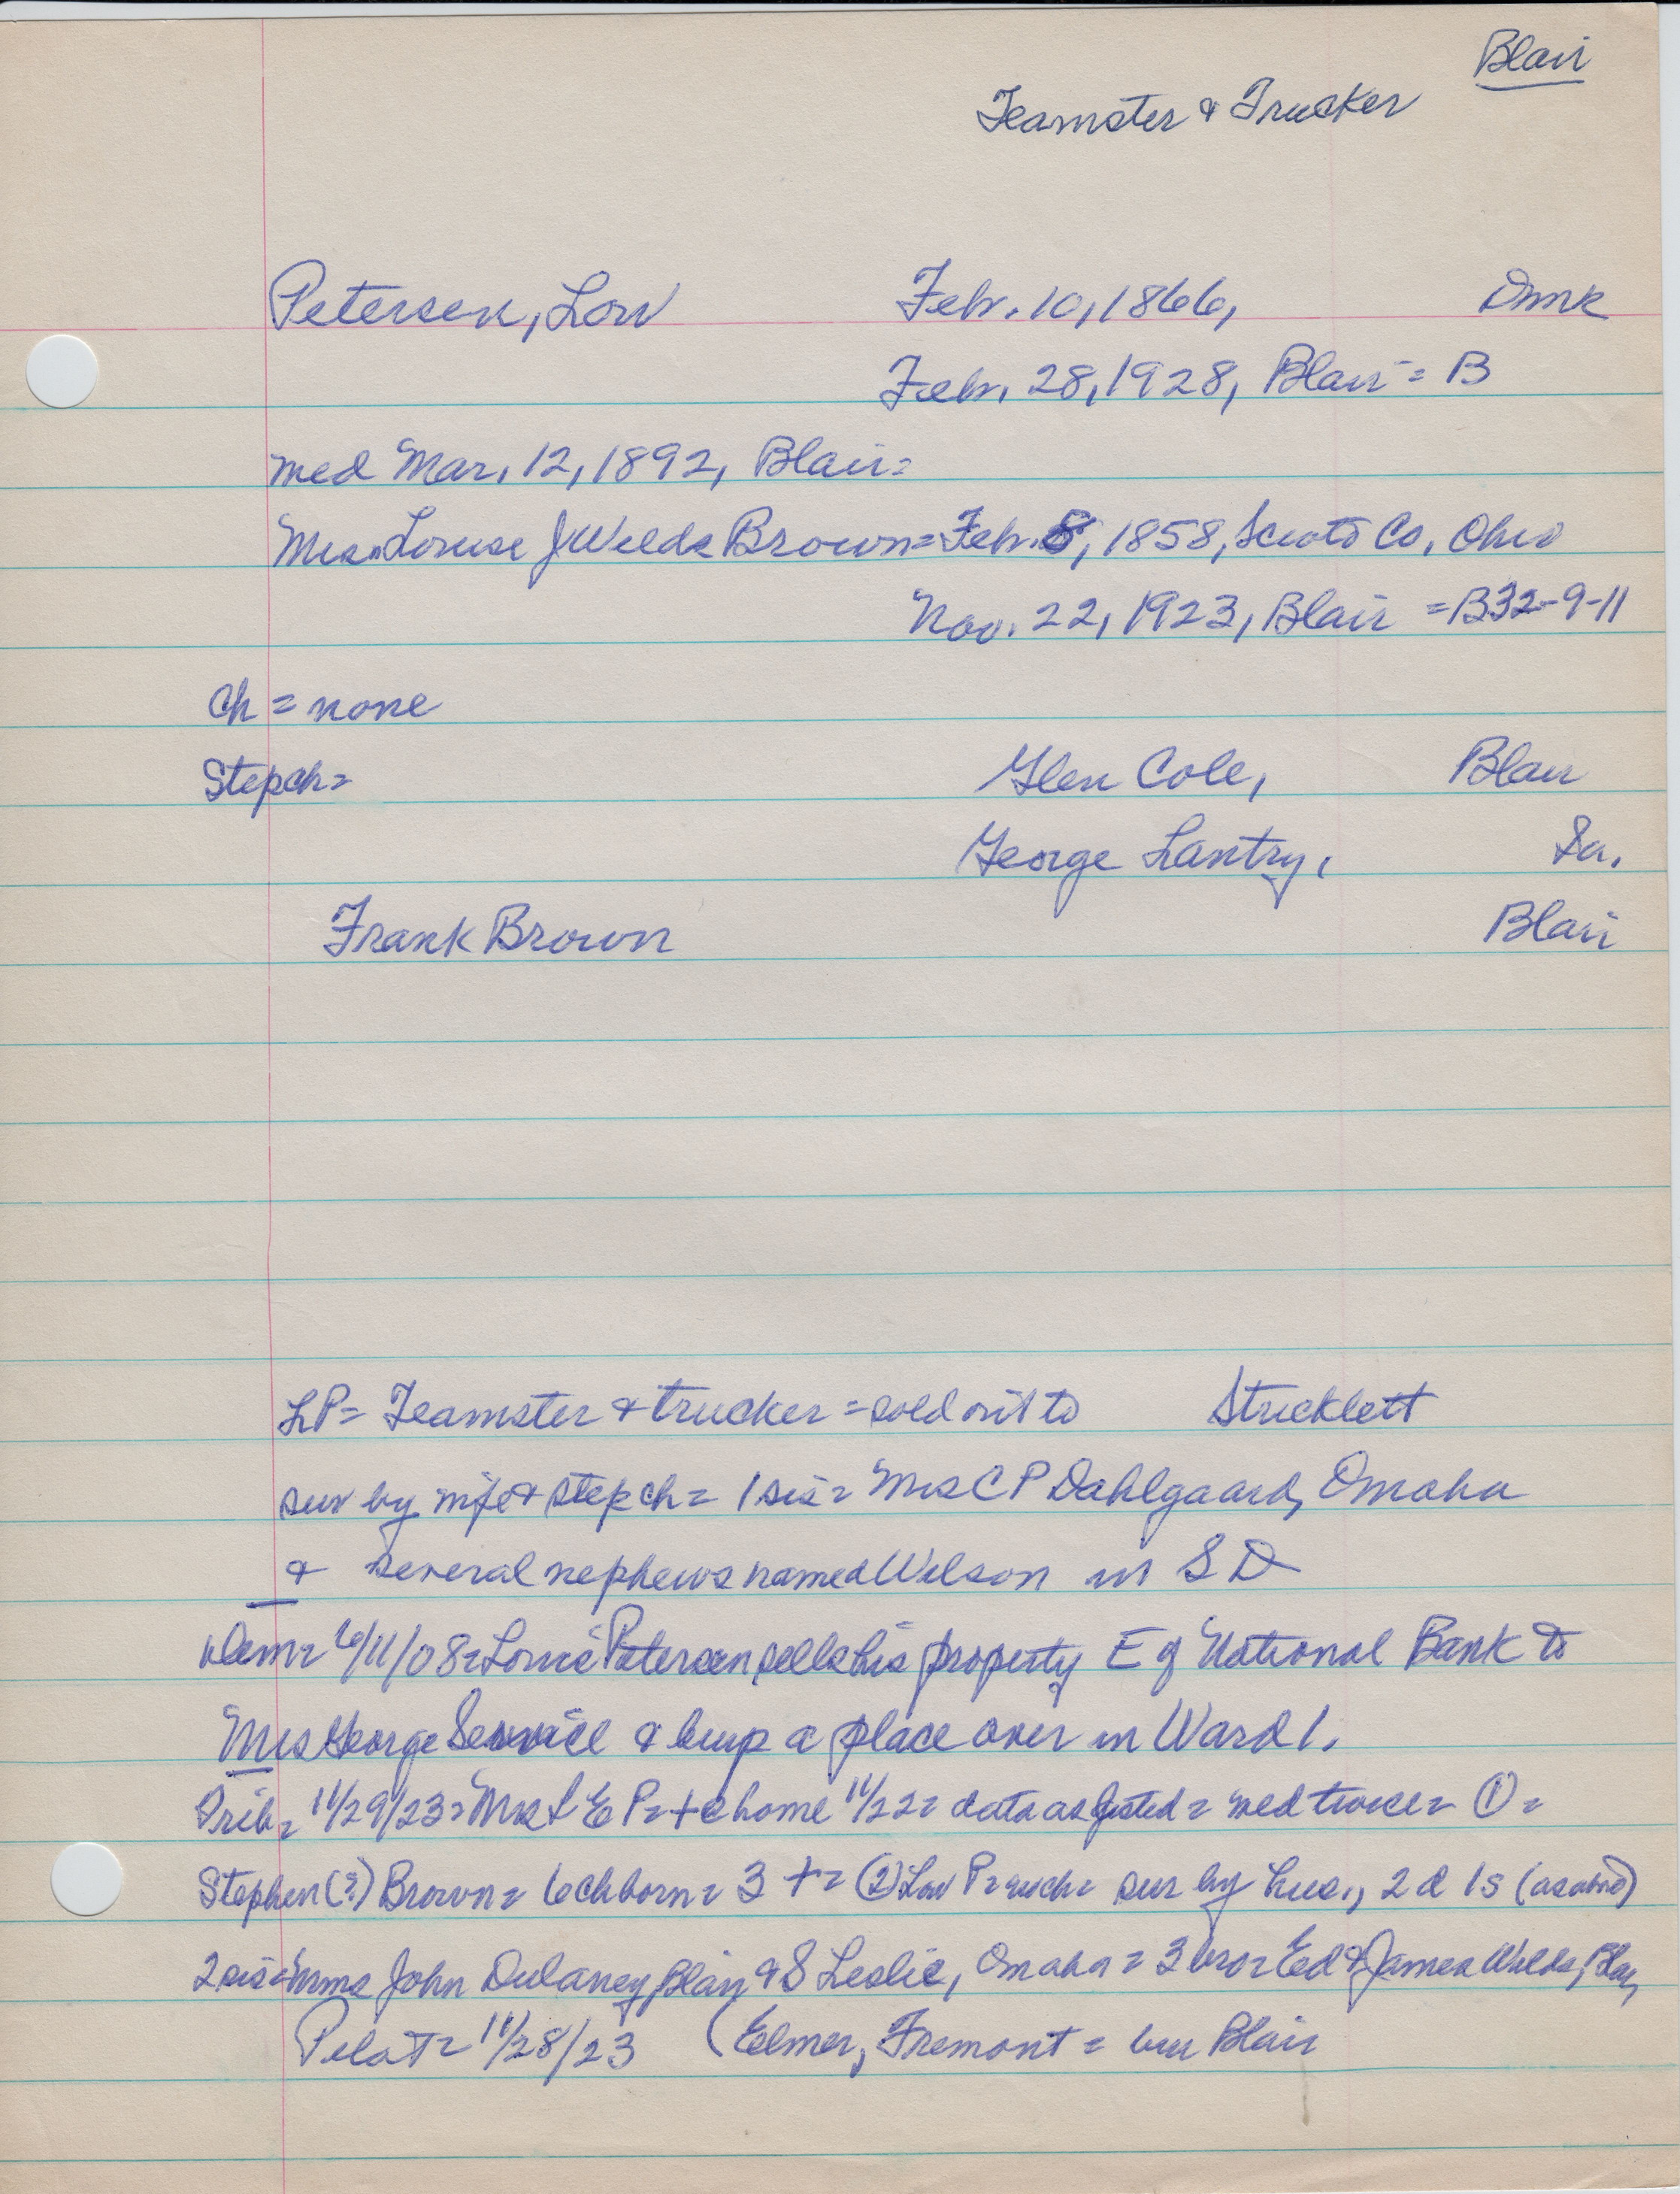 Blair
Teamster & Trucker
Petersen, Lou Feb. 10, 1866, Dmk
Feb. 28, 1928, Blair = B
med Mar. 12, 1892, Blair =
Mrs. Louise J Welds Brown = Feb. 8, 1858, Scioto Co, Ohio
Nov. 22, 1923, Blair = B32-9-11
Ch = none
Stepch =
Glen Cole, Blair
George Lantry, Ia.
Frank Brown Blair
LP = Teamster & trucker = sold out to Stricklett
sur by wife & step ch = 1 sis = Mrs C P Dahlgaard, Omaha
& several nephews named Wilson in S D
Dem = 6/11/08 = Louis Petersen sells his property E of National Bank to
Mrs George & buys a place over in Ward 1.
Trib = 11/29/23 = Mrs L E P = + @ home 11/22 = data as listed = med twice = ① =
Stephen (?) Brown = 6 ch born = 3 + = ② Lou P = ch = sur by hus., 2 d 1 s (as above)
2 sis = Mmes John Dulaney, Blair & S Leslie, Omaha = 3 bro = Ed & James Welds, Blair,
Pilot = 11/28/23 (Elmer, Fremont = bur Blair